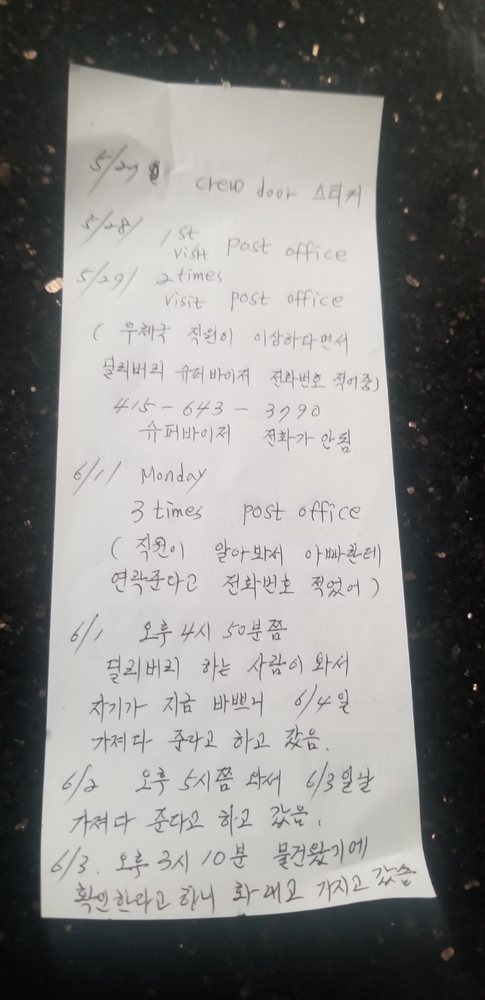 5/27 crew door 스티커
5/28/ 1st visit post office
5/29/ 2 times visit post office
( 우체국 직원이 이상하다면서
딜리버리 슈퍼바이저 전화번호 적어줌)
415-643-3790
슈퍼바이저 전화가 안됨
6/1/ Monday
3 times post office
( 직원이 알아봐서 아빠한테
연락준다고 전화번호 적었어 )
6/1 오후 4시 50분쯤
딜리버리 하는 사람이 와서
자기가 지금 바쁘니 6/4일
가져다 준다고 하고 갔음.
6/2 오후 5시쯤 와서 6/3일날
가져다 준다고 하고 갔음.
6/3. 오후 3시 10분 물건왔기에
확인한다고 하니 화 내고 가지고 갔슴